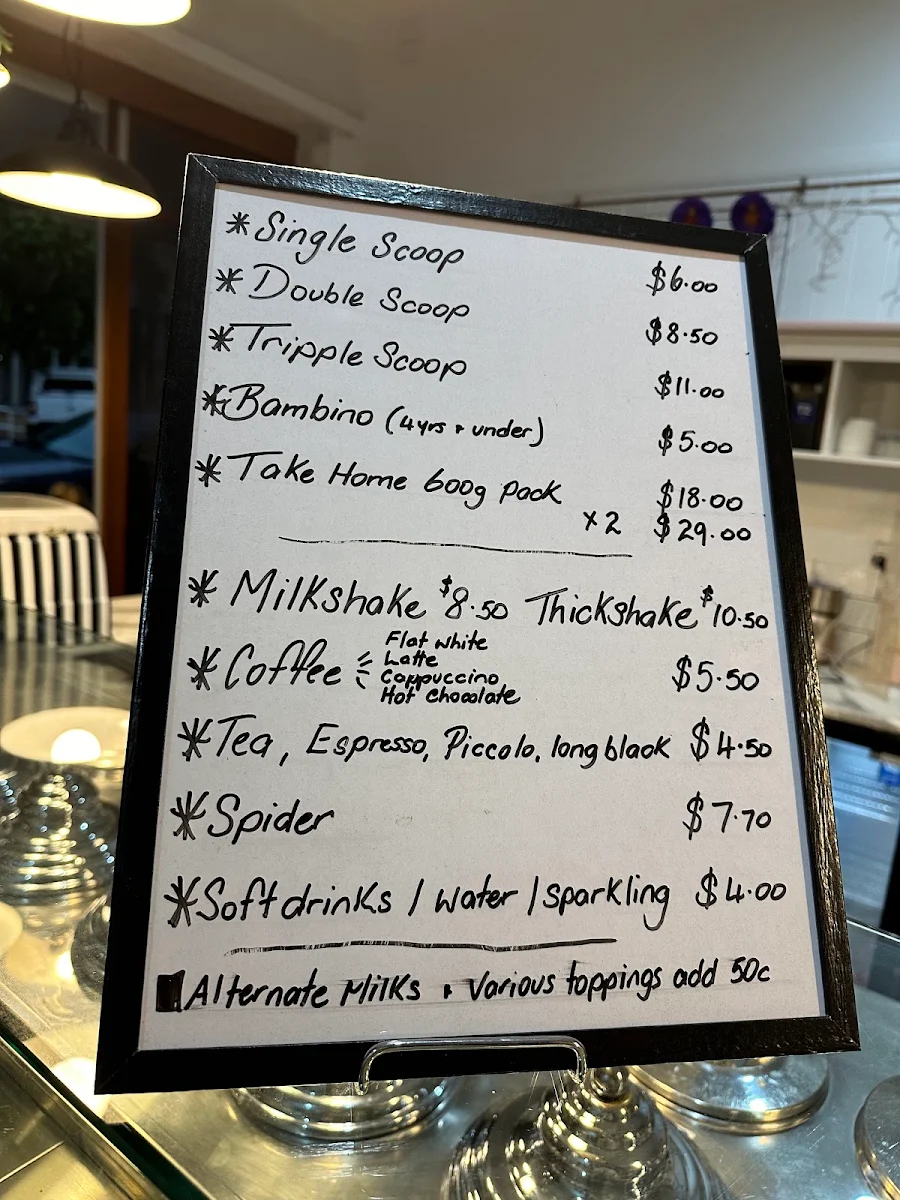 * Single Scoop $6.00
* Double Scoop $8.50
* Tripple Scoop $11.00
* Bambino (4yrs + under) $5.00
* Take Home 600g Pack $18.00
x2 $29.00
* Milkshake $8.50 Thickshake $10.50
* Coffee Flat white
Latte
Cappuccino
Hot Chocolate
$5.50
* Tea, Espresso, Piccolo, long black $4.50
* Spider $7.70
* Soft drinks / water / sparkling $4.00
Alternate Milks + Various toppings add 50c